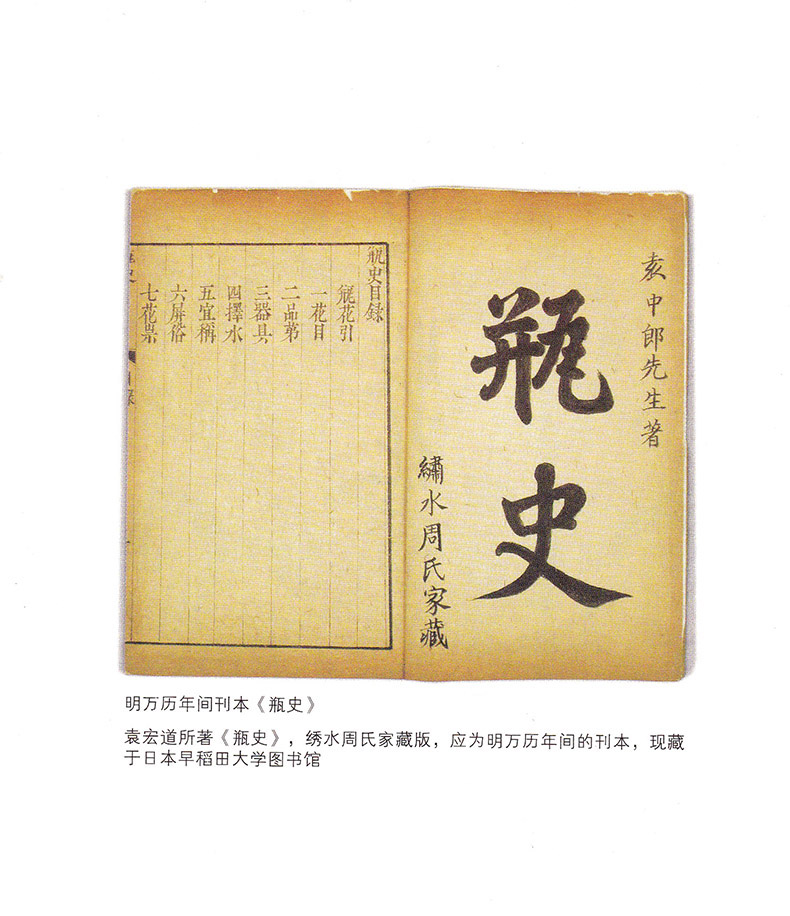 袁中郎先生著
瓶史
繡水周氏家藏
瓶史目錄
瓶花引
一花目
二品第
三器具
四擇水
五宜稱
六屏俗
七花祟
明万历年间刊本《瓶史》
袁宏道所著《瓶史》，绣水周氏家藏版，应为明万历年间的刊本，现藏
于日本早稻田大学图书馆